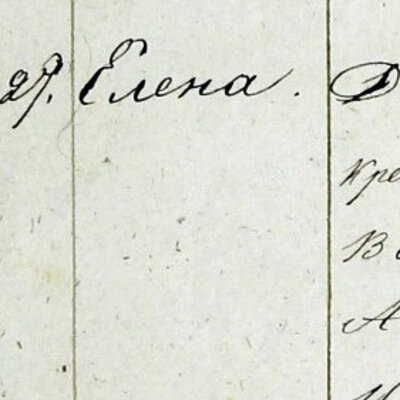 29. Елена. Д
кре
В
А